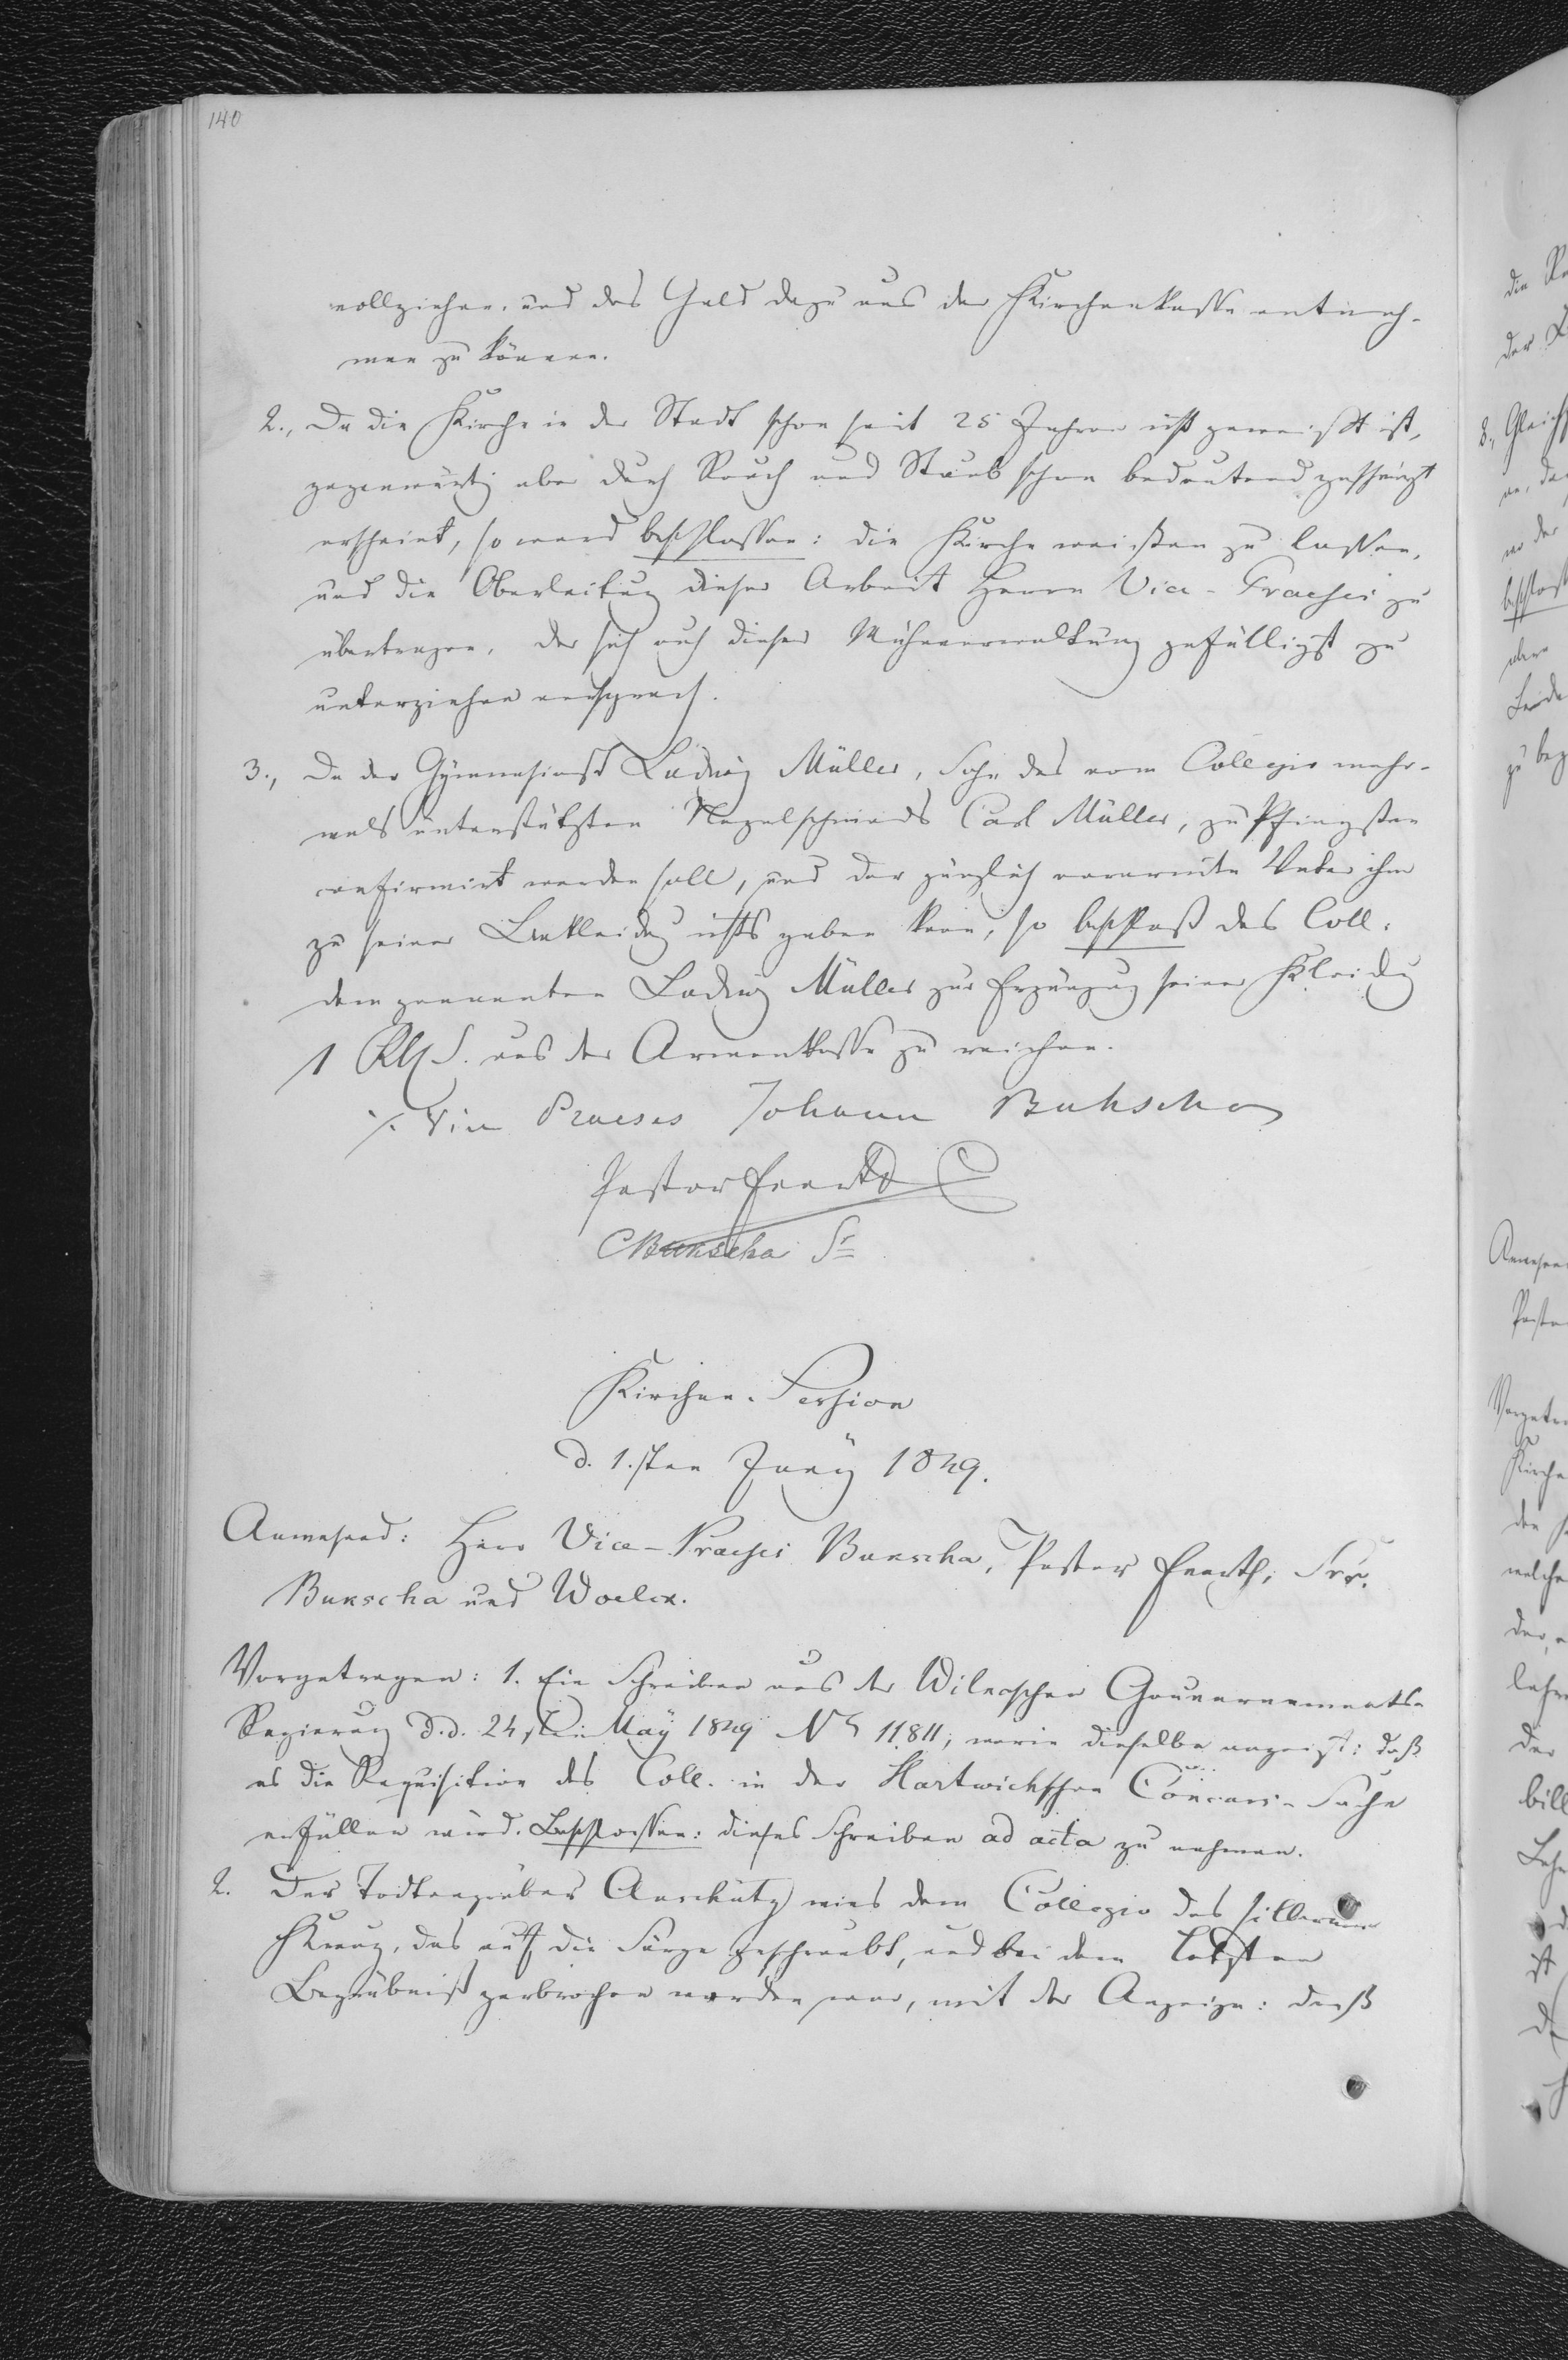 140
vollziehen, und das Geld dazu aus der Kirchenkasse entneh-
men zu können.
2., Da die Kirche in der Stadt schon seit 25 Jahren nicht geweißt ist,
gegenwärtig aber durch Rauch und Staub schon bedeutend geschwärzt
erscheint, so ward beschlossen: die Kirche weißen zu lassen,
und die Oberleitung dieser Arbeit Herrn Vice-Praesesi zu
übertragen, der sich auch dieser Mühverwaltung gefälligst zu
unterziehen versprach.
3., Da der Gymnasiast Ludwig Müller, Sohn des vom Collegio mehr-
mals unterstützten Nagelschmieds Carl Müller, zu Pfingsten
confirmirt werden soll, und der gänzlich verarmte Vater ihm
zu seiner Bekleidung nichts geben kann, so beschloß das Coll:
dem genannten Ludwig Müller zur Ergänzung seiner Kleidung
1 Rbl S. aus der Armenkasse zu reichen.
Vice Praeses Johann Bukscha
Pastor
Bukscha Sr
Kirchen-Session
d. 1.sten Juny 1849.
Anwesend: Herr Vice-Praeses Bukscha, Pastor
Bukscha und Woelck.
Vorgetragen: 1. Ein Schreiben aus der Wilnaschen Gouvernements-
Regierung d. d. 24sten May 1849 No 11811, worin dieselbe anzeigt: daß
es die Requisition des Coll. in der Hartwichschen Concurs-Sache
erfüllen wird. Beschlossen: dieses Schreiben ad acta zu nehmen.
2. Der Todtengräber Anschütz wies dem Collegio das silberne
Kreuz, das auf die Särge geschraubt, und bei dem letzten
Begräbniß zerbrochen worden war, mit der Anzeige: daß